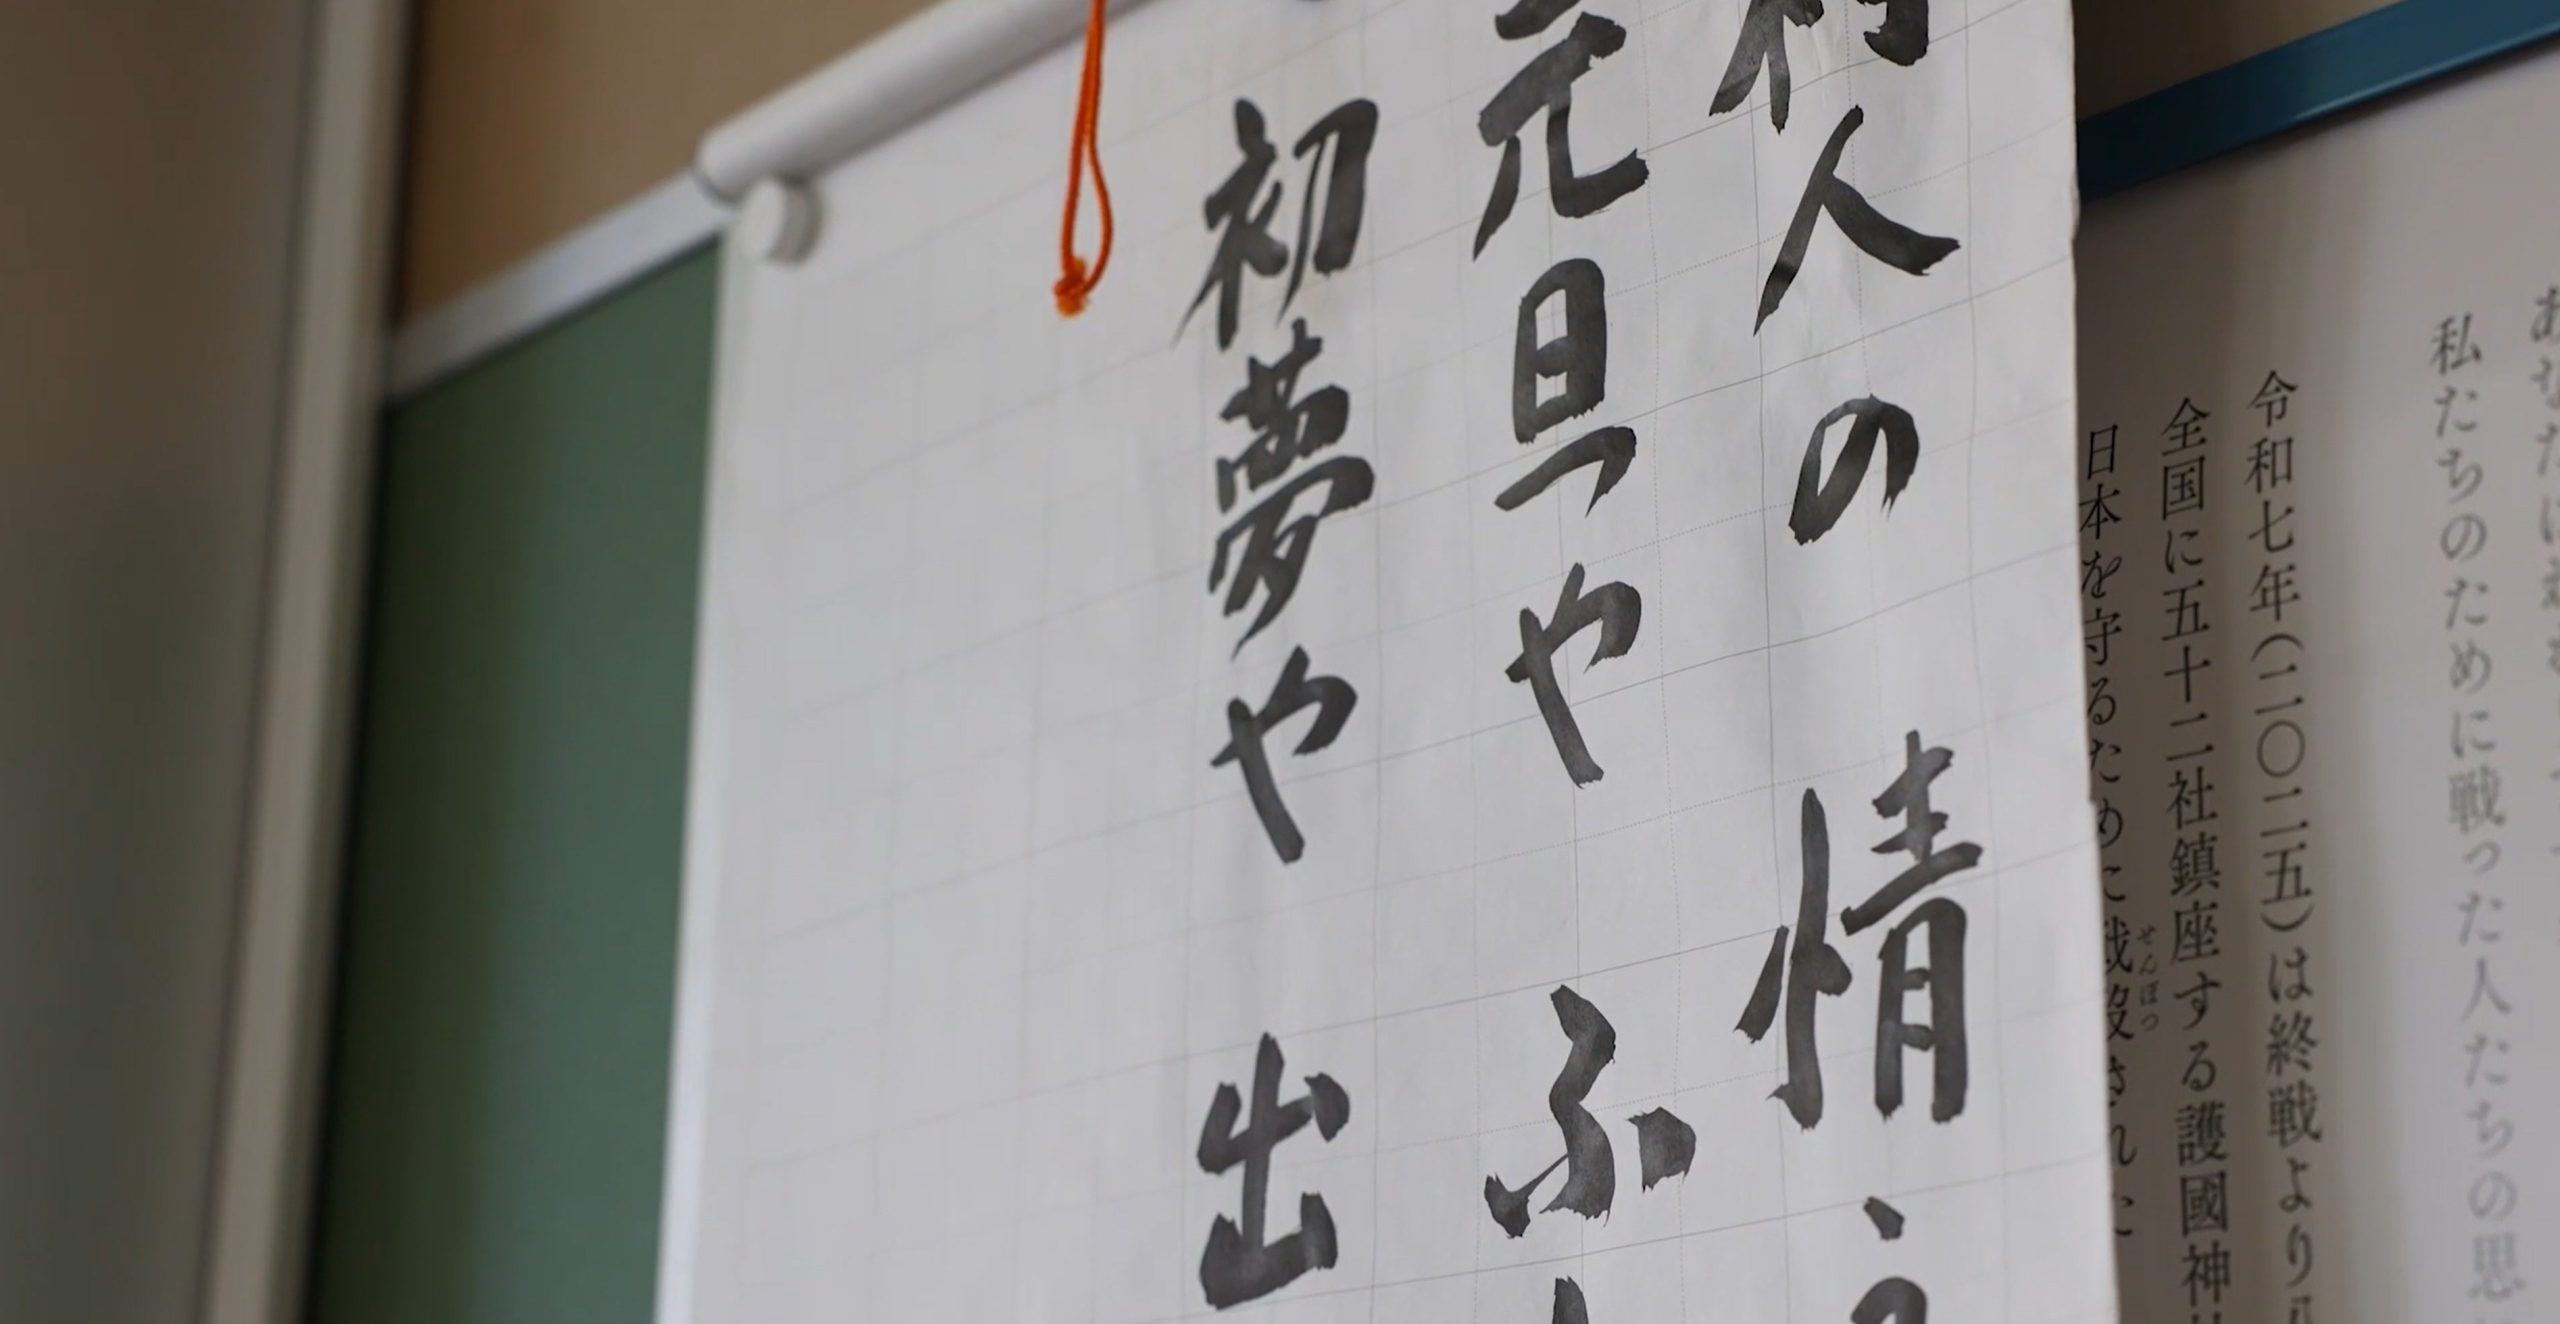 人の 情
元旦や ふ
初夢や 出
私たちのために戦った人たちの思
令和七年(二〇二五)は終戦より
全国に五十二社鎮座する護國神
日本を守るために戦没された
せんぼつ